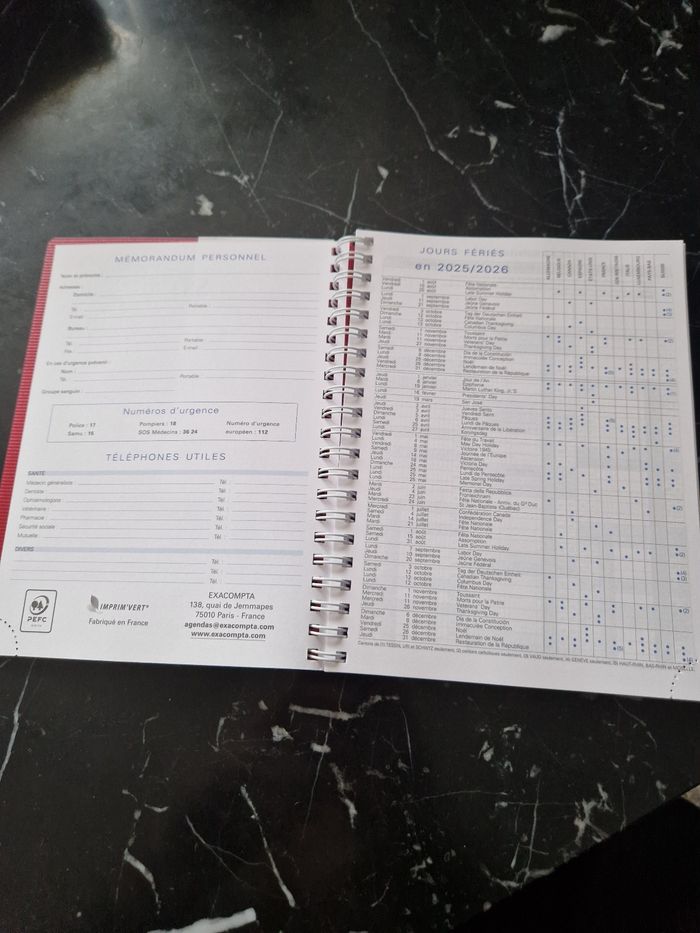 MÉMORANDUM PERSONNEL
Nom et prénoms :
Adresses :
Domicile :
Tél. Portable :
E-mail :
Bureau :
Tél. Portable :
Fax : E-mail :
En cas d'urgence prévenir :
Nom :
Tél. Portable :
Groupe sanguin :
Numéros d'urgence
Police : 17 Pompiers : 18 Numéro d'urgence
Samu : 15 SOS Médecins : 36 24 européen : 112
TÉLÉPHONES UTILES
SANTÉ
Médecin généraliste : Tél. :
Dentiste : Tél. :
Ophtalmologiste : Tél. :
Vétérinaire : Tél. :
Pharmacie : Tél. :
Sécurité sociale : Tél. :
Mutuelle : Tél. :
DIVERS
Tél. :
Tél. :
Tél. :
PEFC
IMPRIM'VERT®
Fabriqué en France
EXACOMPTA
138, quai de Jemmapes
75010 Paris - France
agendas@exacompta.com
www.exacompta.com
JOURS FÉRIÉS
en 2025/2026
ALLEMAGNE BELGIQUE CANADA ESPAGNE ÉTATS-UNIS FRANCE GDE-BRETAGNE ITALIE LUXEMBOURG PAYS-BAS SUISSE
Vendredi 1 août Fête Nationale
Vendredi 15 août Assomption
Lundi 25 août Late Summer Holiday
Lundi 1 septembre Labor Day
Jeudi septembre Jeûne Genevois
Dimanche 21 septembre Jeûne Fédéral
octobre Tag der Deutschen Einheit
Dimanche 12 octobre Fête Nationale
Lundi 13 octobre Canadian Thanksgiving
Lundi 13 octobre Columbus Day
Samedi 1 novembre Toussaint
Mardi 11 novembre Morts pour la Patrie
Mardi 11 novembre Veterans' Day
Jeudi 27 novembre Thanksgiving Day
Samedi 6 décembre Dia de la Constitución
Lundi 8 décembre Immaculée Conception
Jeudi 25 décembre Noël
Vendredi 26 décembre Lendemain de Noël
Mercredi 31 décembre Restauration de la République
Jeudi 1 janvier Jour de l'An
Mardi 6 janvier Epiphanie
Lundi 19 janvier Martin Luther King, Jr.'S
Lundi 16 février Presidents' Day
Jeudi 19 mars San José
Jeudi 2 avril Jueves Santo
Vendredi 3 avril Vendredi Saint
Dimanche 5 avril Pâques
Lundi 6 avril Lundi de Pâques
Samedi 25 avril Anniversaire de la Libération
Lundi 27 avril Koningsdag
Vendredi 1 mai Fête du Travail
Lundi 4 mai May Day Holiday
Vendredi 8 mai Victoire 1945
Samedi 9 mai Journée de l'Europe
Jeudi 14 mai Ascension
Lundi 18 mai Victoria Day
Dimanche 24 mai Pentecôte
Lundi 25 mai Lundi de Pentecôte
Lundi 25 mai Late Spring Holiday
Lundi 25 mai Memorial Day
Mardi 2 juin Festa della Repubblica
Jeudi 4 juin Fronleichnam
Mardi 23 juin Fête Nationale - Anniv. du Gd Duc
Mercredi 24 juin St Jean-Baptiste (Québec)
Mercredi 1 juillet Confédération Canada
Samedi 4 juillet Independence Day
Mardi 14 juillet Fête Nationale
Mardi 21 juillet Fête Nationale
Samedi 1 août Fête Nationale
Samedi 15 août Assomption
Lundi 31 août Late Summer Holiday
Lundi 7 septembre Labor Day
Jeudi septembre Jeûne Genevois
Dimanche 20 septembre Jeûne Fédéral
Samedi 3 octobre Tag der Deutschen Einheit
Lundi 12 octobre Canadian Thanksgiving
Lundi 12 octobre Columbus Day
Lundi 12 octobre Fête Nationale
Dimanche 1 novembre Toussaint
Mercredi 11 novembre Morts pour la Patrie
Mercredi 11 novembre Veterans' Day
Jeudi 26 novembre Thanksgiving Day
Dimanche 6 décembre Dia de la Constitución
Mardi 8 décembre Immaculée Conception
Vendredi 25 décembre Noël
Samedi 26 décembre Lendemain de Noël
Jeudi 31 décembre Restauration de la République
Cantons de (1) TESSIN, URI et SCHWYZ seulement, (2) cantons catholiques seulement, (3) VAUD seulement, (4) GENÈVE seulement, (5) HAUT-RHIN, BAS-RHIN et MOSELLE.